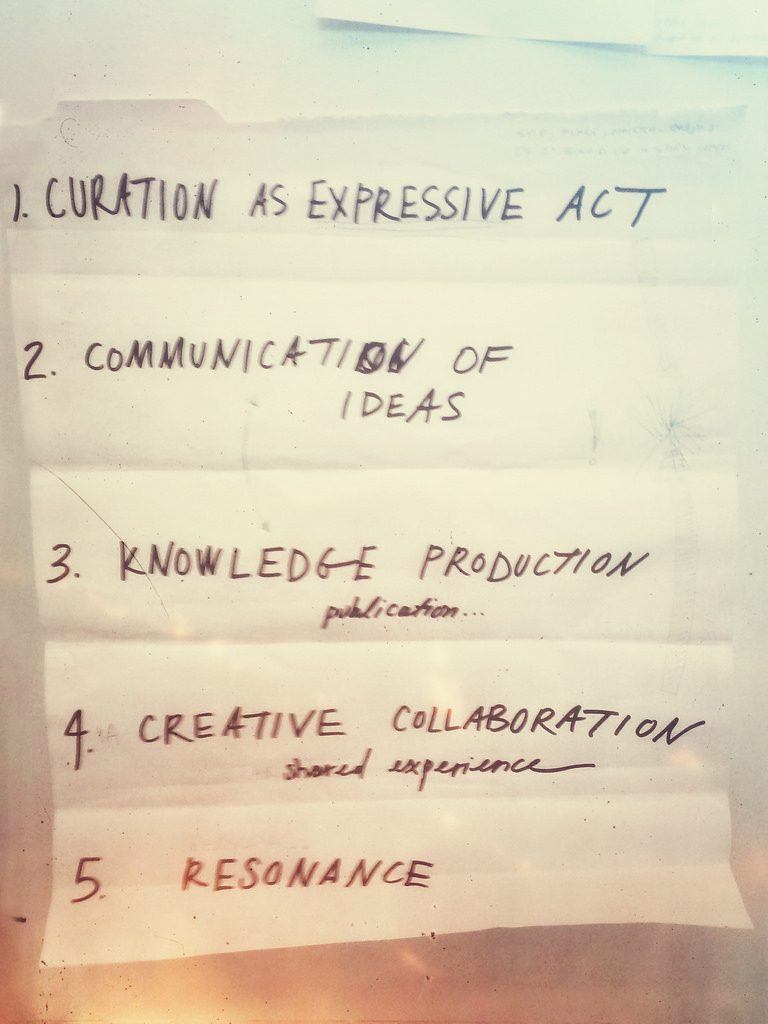 1. CURATION AS EXPRESSIVE ACT
2. COMMUNICATION OF
IDEAS
3. KNOWLEDGE PRODUCTION
publication...
4. CREATIVE COLLABORATION
shared experience
5. RESONANCE